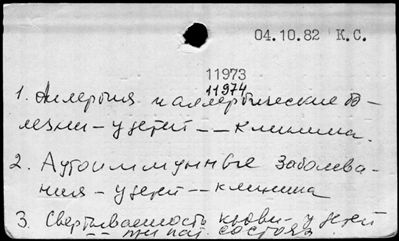 04.10.82 К.С.
11973
11974
1. Аллергия и аллергические бо-
лезни - у детей -- клиника.
2. Аутоиммунные заболева-
ния - у детей -- клиника
3. Свертываемость крови - у детей
-- при пат. состоян.